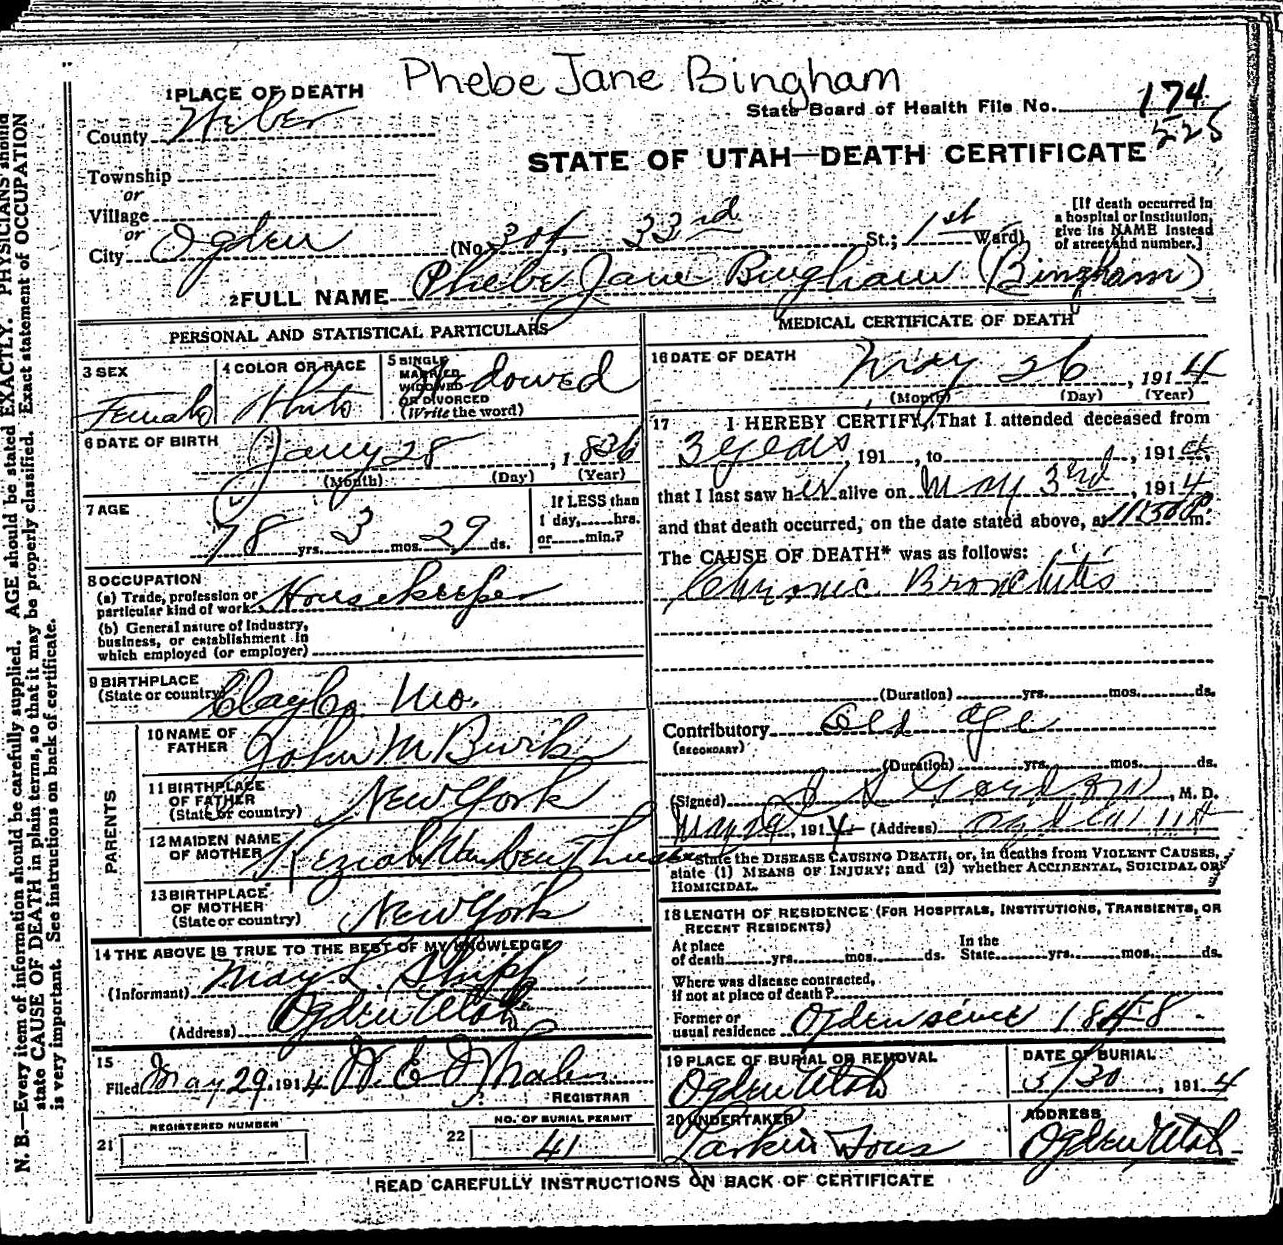 Phebe Jane Bingham
1 PLACE OF DEATH
State Board of Health File No. 174
225
County Weber
STATE OF UTAH—DEATH CERTIFICATE
Township
or
Village
or
City Ogden (No. 301, 33rd St.; 1st Ward)
[If death occurred in
a hospital or institution,
give its NAME instead
of street and number.]
2 FULL NAME Phebe Jane Bingham (Bingham)
PERSONAL AND STATISTICAL PARTICULARS
3 SEX
Female
4 COLOR OR RACE
White
5 SINGLE
MARRIED
WIDOWED
OR DIVORCED
(Write the word)
Widowed
6 DATE OF BIRTH
Jany 28, 1836
(Month) (Day) (Year)
7 AGE
78 yrs. 3 mos. 29 ds.
If LESS than
1 day, hrs.
or min.?
8 OCCUPATION
(a) Trade, profession or
particular kind of work Housekeeper
(b) General nature of industry,
business, or establishment in
which employed (or employer)
9 BIRTHPLACE
(State or country) Clay Co. Mo.
PARENTS
10 NAME OF
FATHER John M Burk
11 BIRTHPLACE
OF FATHER
(State or country) New York
12 MAIDEN NAME
OF MOTHER Keziah
13 BIRTHPLACE
OF MOTHER
(State or country) New York
14 THE ABOVE IS TRUE TO THE BEST OF MY KNOWLEDGE
(Informant) May L Shipp
(Address) Ogden Utah
15
Filed May 29, 1914 W. E. Whalen
REGISTRAR
21 REGISTERED NUMBER
22 NO. OF BURIAL PERMIT
41
MEDICAL CERTIFICATE OF DEATH
16 DATE OF DEATH
May 26, 1914
(Month) (Day) (Year)
17 I HEREBY CERTIFY, That I attended deceased from
3 years, 191 , to , 191
that I last saw her alive on May 3rd, 1914
and that death occurred, on the date stated above, at 11:50 P. m.
The CAUSE OF DEATH* was as follows:
Chronic Bronchitis
(Duration) yrs. mos. ds.
Contributory Old age
(SECONDARY)
(Duration) yrs. mos. ds.
(Signed) Gordon, M. D.
May 29, 1914 (Address) Ogden Ut
*State the DISEASE CAUSING DEATH, or, in deaths from VIOLENT CAUSES,
state (1) MEANS OF INJURY; and (2) whether ACCIDENTAL, SUICIDAL OR
HOMICIDAL.
18 LENGTH OF RESIDENCE (FOR HOSPITALS, INSTITUTIONS, TRANSIENTS, OR
RECENT RESIDENTS)
At place
of death yrs. mos. ds.
In the
State yrs. mos. ds.
Where was disease contracted,
if not at place of death?
Former or
usual residence Ogden since 1848
19 PLACE OF BURIAL OR REMOVAL
Ogden Utah
DATE OF BURIAL
5/30, 1914
20 UNDERTAKER
Larkin Sons
ADDRESS
Ogden Utah
READ CAREFULLY INSTRUCTIONS ON BACK OF CERTIFICATE
N. B.—Every item of information should be carefully supplied. AGE should be stated EXACTLY. PHYSICIANS should
state CAUSE OF DEATH in plain terms, so that it may be properly classified. Exact statement of OCCUPATION
is very important. See instructions on back of certificate.